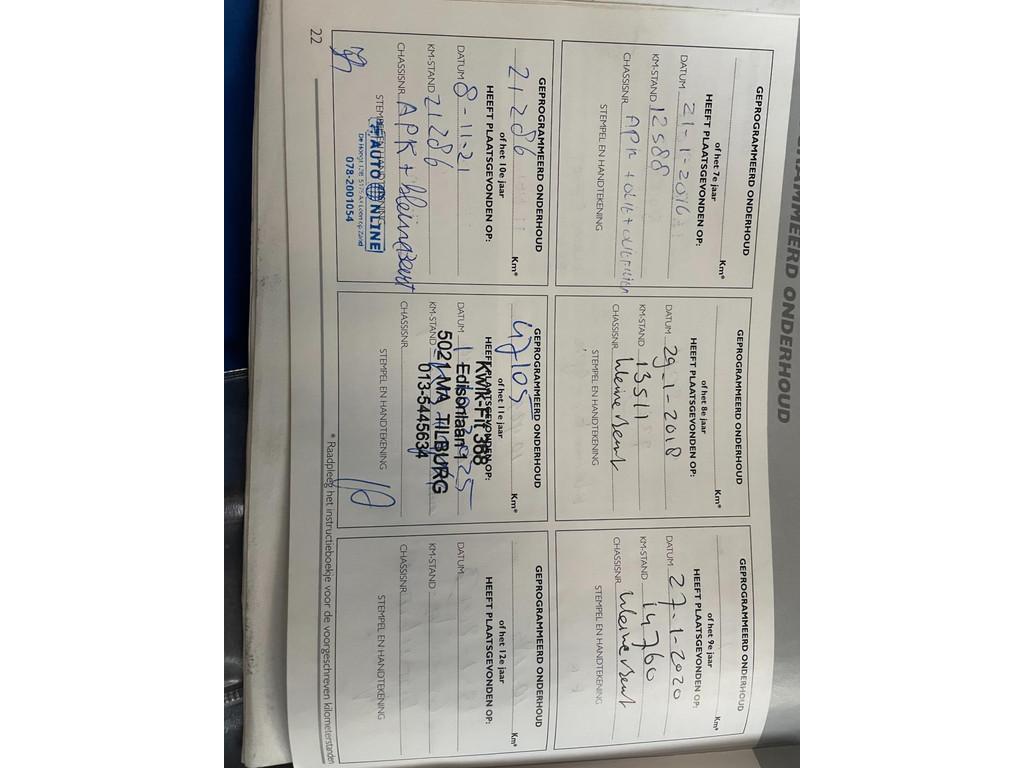 GEPROGRAMMEERD ONDERHOUD
GEPROGRAMMEERD ONDERHOUD
Km*
of het 7e jaar
HEEFT PLAATSGEVONDEN OP:
DATUM 21-1-2016
KM-STAND 12588
CHASSISNR. APK +
STEMPEL EN HANDTEKENING
GEPROGRAMMEERD ONDERHOUD
Km*
of het 8e jaar
HEEFT PLAATSGEVONDEN OP:
DATUM 29-1-2018
KM-STAND 13511
CHASSISNR. kleine beurt
STEMPEL EN HANDTEKENING
GEPROGRAMMEERD ONDERHOUD
Km*
of het 9e jaar
HEEFT PLAATSGEVONDEN OP:
DATUM 27-1-2020
KM-STAND 14760
CHASSISNR. kleine beurt
STEMPEL EN HANDTEKENING
GEPROGRAMMEERD ONDERHOUD
21286 Km*
of het 10e jaar
HEEFT PLAATSGEVONDEN OP:
DATUM 8-11-21
KM-STAND 21286
CHASSISNR. APK + kleine beurt
STEMPEL EN HANDTEKENING
AUTO ONLINE
078-2001054
GEPROGRAMMEERD ONDERHOUD
47105 Km*
of het 11e jaar
HEEFT PLAATSGEVONDEN OP:
Kwik-Fit 368
DATUM
Edisonlaan 1
KM-STAND
5021 MA TILBURG
013-5445634
CHASSISNR.
STEMPEL EN HANDTEKENING
GEPROGRAMMEERD ONDERHOUD
Km*
of het 12e jaar
HEEFT PLAATSGEVONDEN OP:
DATUM
KM-STAND
CHASSISNR.
STEMPEL EN HANDTEKENING
* Raadpleeg het instructieboekje voor de voorgeschreven kilometerstanden
22